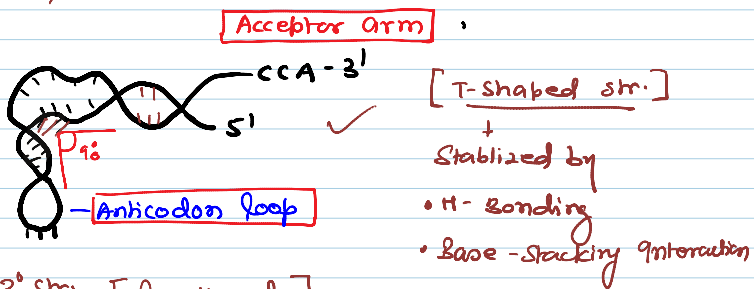 Acceptor arm
CCA-3'
5'
90°
Anticodon loop
[T-shaped str.]
Stablized by
• H-Bonding
• Base-stacking interaction